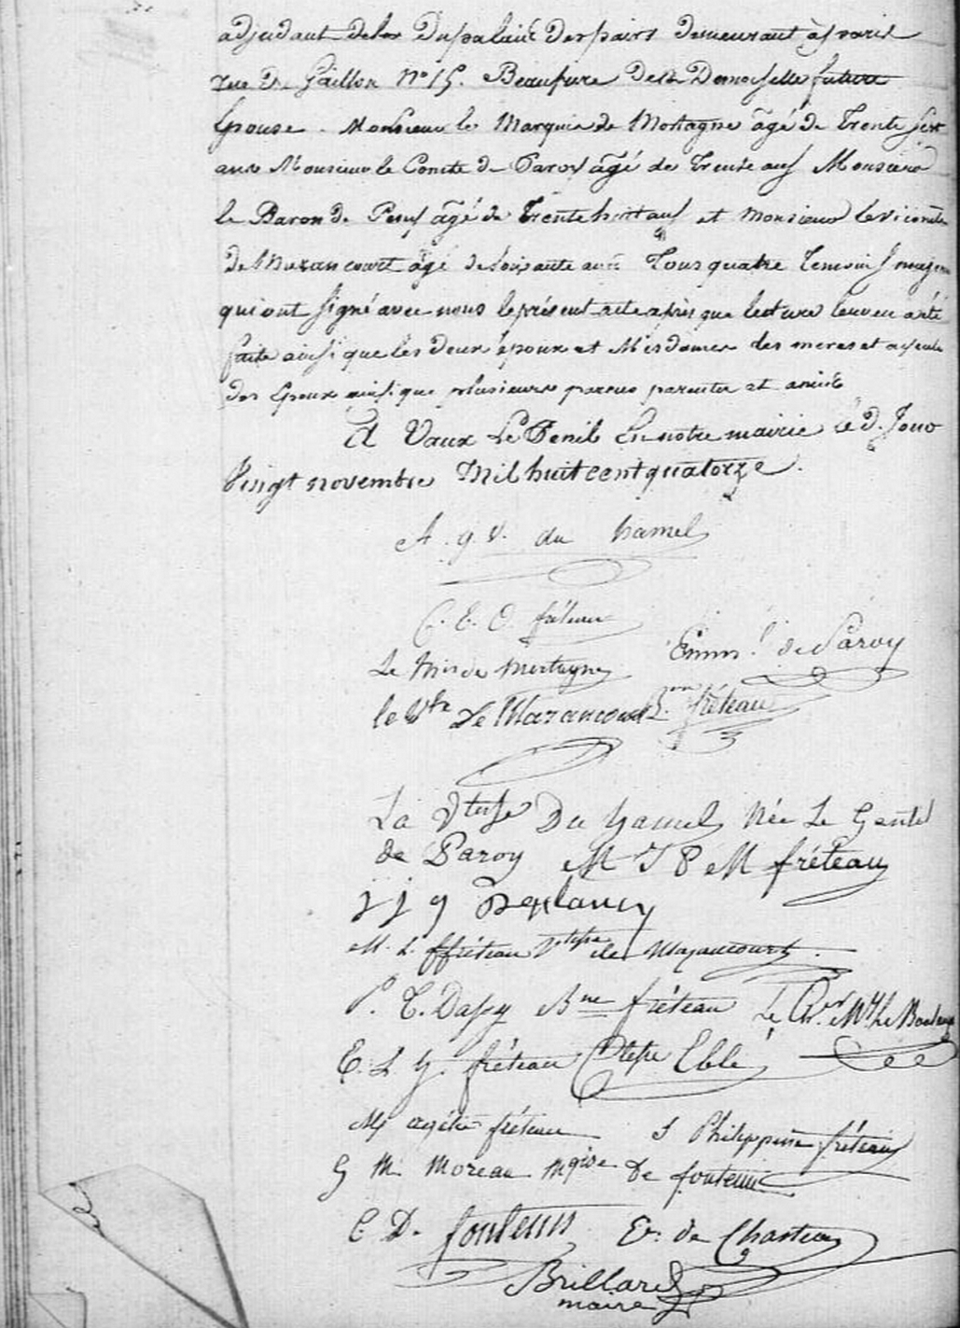 adjudant de la du palais des pairs demeurant à paris
rue de Gaillon N° 15. Beaufrere de la Demoiselle future
Epouse. Monsieur le Marquis de Mortagne âgé de Trente sept
ans Monsieur le Comte de Paroy âgé de Trente ans Monsieur
le Baron de âgé de Trente huit ans et Monsieur le vicomte
de Mazancourt âgé de soixante ans Tous quatre temoins
qui ont signé avec nous le présent acte après que lecture leur en a été
faite ainsi que les deux époux et Mesdames les meres et ayeule
des Epoux ainsi que plusieurs parens parentes et amis
A Vaux Le Penil En notre mairie le d. Jour
Vingt novembre Mil huit cent quatorze.
A. g. V. du hamel
C. E. O. fréteau
Emm.l de Paroy
Le Mis de Mortagne
le Vte de Mazancourt
Bon fréteau
La Vtesse Du hamel Née Le Gentil
de Paroy M J P M fréteau
J J g
M. L. ffréteau Vtesse de Mazancourt.
P. T. Dassy Bne fréteau Le Cher
E. L. G. fréteau Ctesse Eblé
fréteau J Philippine fréteau
G M Moreau Mqise De fontenu
C. D. fontenu E. de Chasteau
Brillard
maire